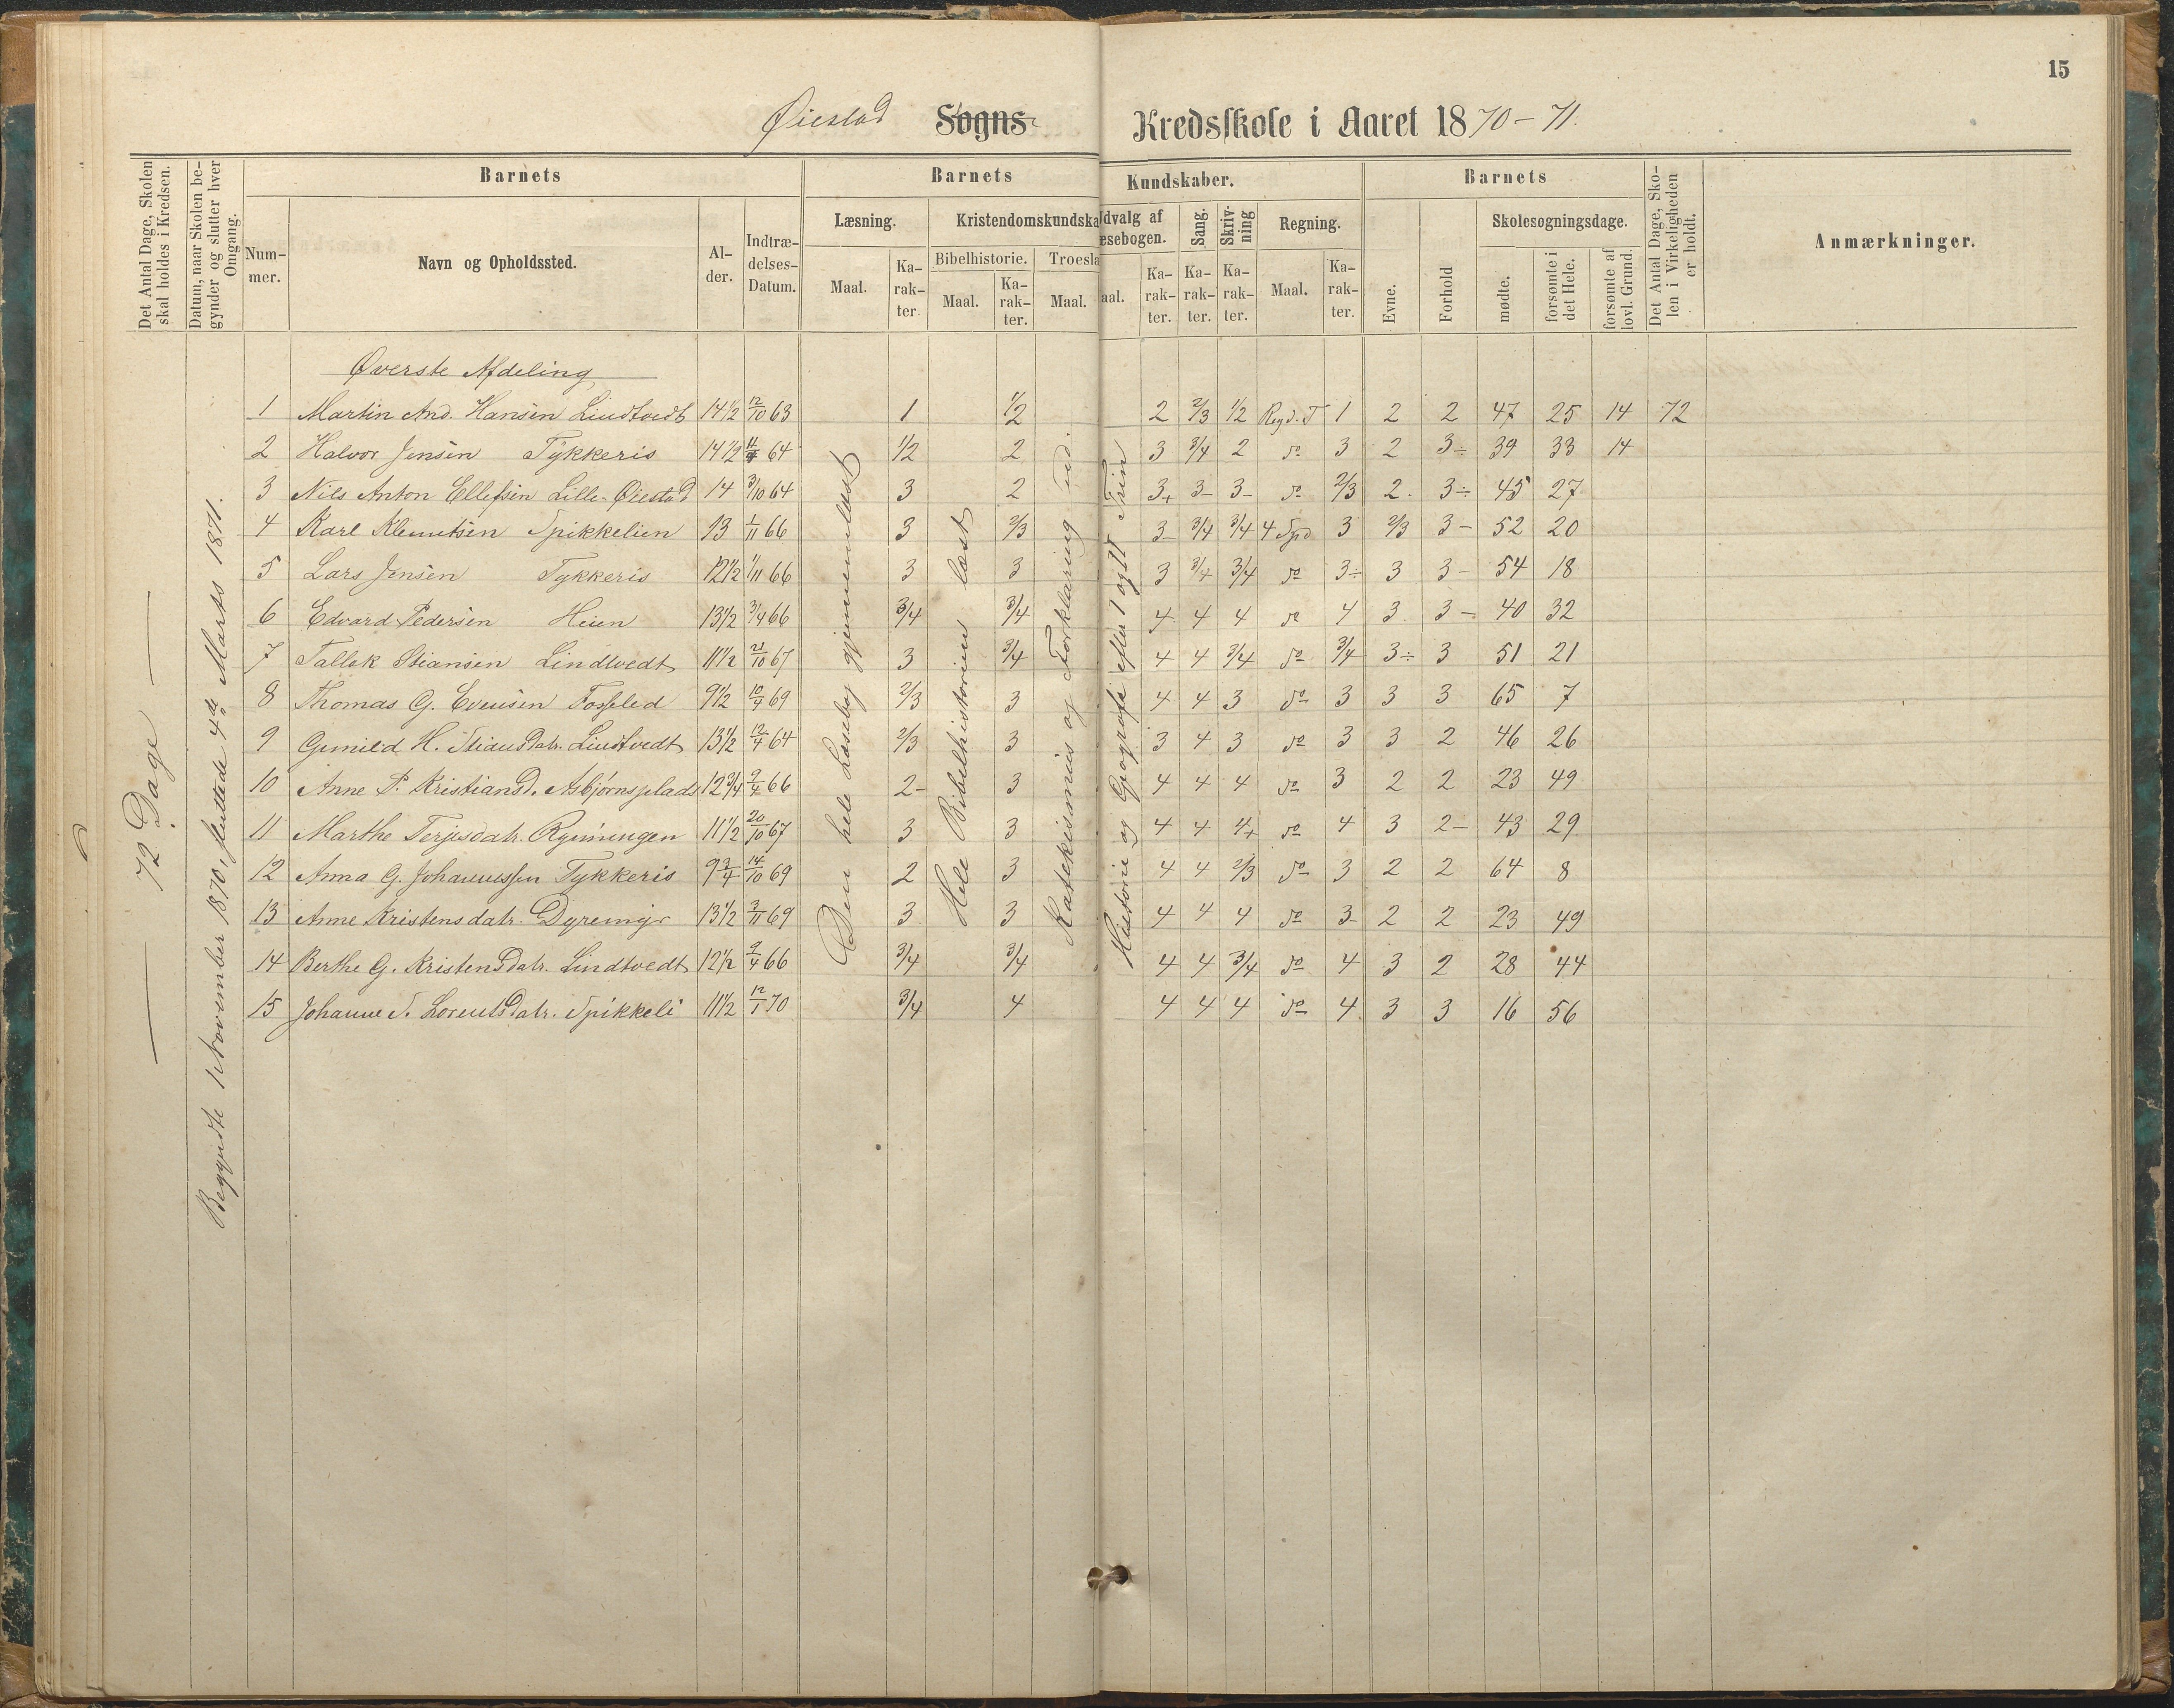 15
Øiestad Sogns- Kredsskole i Aaret 1870-71.
Det Antal Dage, Skolen skal holdes i Kredsen.
Datum, naar Skolen begynder og slutter hver Omgang.
Barnets
Num-mer.
Navn og Opholdssted.
Al-der.
Indtræ-delses-Datum.
Barnets
Kundskaber.
Læsning.
Maal.
Ka-rak-ter
Kristendomskundska
Bibelhistorie.
Maal.
Ka-rak-ter.
Troesla
Maal.
Udvalg af
æsebogen.
aal.
Ka-rak-ter.
Sang.
Ka-rak-ter.
Skriv-ning
Ka-rak-ter.
Regning.
Maal.
Ka-rak-ter.
Barnets
Evne.
Forhold
Skolesøgningsdage.
mødte.
forsømte i det Hele.
forsømte af lovl. Grund.
Det Antal Dage, Sko-len i Virkeligheden er holdt.
Anmærkninger.
72 Dage
Begyndte 1 November 1870, sluttede 4de Marts 1871.
Øverste Afdeling
Den hele Læsebog gjennemlæst
Hele Bibelhistorien læst
Katekismus og Forklaring ud.
Historie og Geografi efter 1 og II Trin
1 Martin And. Hansen Lindtvedt 14½ 12/10 63 1 1/2 2 2/3 1/2 Regd. T 1 2 2 47 25 14 72
2 Halvor Jensen Tykkeris 14½ 64 1/2 2 3 3/4 2 do 3 2 3÷ 39 33 14
3 Nils Anton Ellefsen Lille-Øiestad 14 3/10 64 3 2 3+ 3- 3- do 2/3 2. 3÷ 45 27
4 Karl Klemetsen Spikkelien 13 1/11 66 3 2/3 3- 3/4 3/4 4 Spd 3 2/3 3- 52 20
5 Lars Jensen Tykkeris 12½ 1/11 66 3 3 3 3/4 3/4 do 3÷ 3 3- 54 18
6 Edvard Pedersen Heien 13½ 3/4 66 3/4 3/4 4 4 4 do 4 3 3- 40 32
7 Tallak Stiansen Lindtvedt 11½ 21/10 67 3 3/4 4 4 3/4 do 3/4 3÷ 3 51 21
8 Thomas G. Evensen Fosseled 9½ 10/4 69 2/3 3 4 4 3 do 3 3 3 65 7
9 Gunild H. Stiansdatr. Lindtvedt 13½ 12/4 64 2/3 3 3 4 3 do 3 3 2 46 26
10 Anne P. Kristiansd. Asbjørnsplads 12¾ 9/4 66 2- 3 4 4 4 do 3 2 2 23 49
11 Marthe Terjesdatr. Rønningen 11½ 20/10 67 3 3 4 4 4+ do 4 3 2- 43 29
12 Anna G. Johannessen Tykkeris 9¾ 14/10 69 2 3 4 4 2/3 do 3 2 2 64 8
13 Anne Kristensdatr. Dyremyr 13½ 3/11 69 3 3 4 4 4 do 3- 2 2 23 49
14 Berthe G. Kristensdatr. Lindtvedt 12½ 9/4 66 3/4 3/4 4 4 3/4 do 4 3 2 28 44
15 Johanne S. Lorentsdatr. Spikkeli 11½ 12/1 70 3/4 4 4 4 4 do 4 3 3 16 56